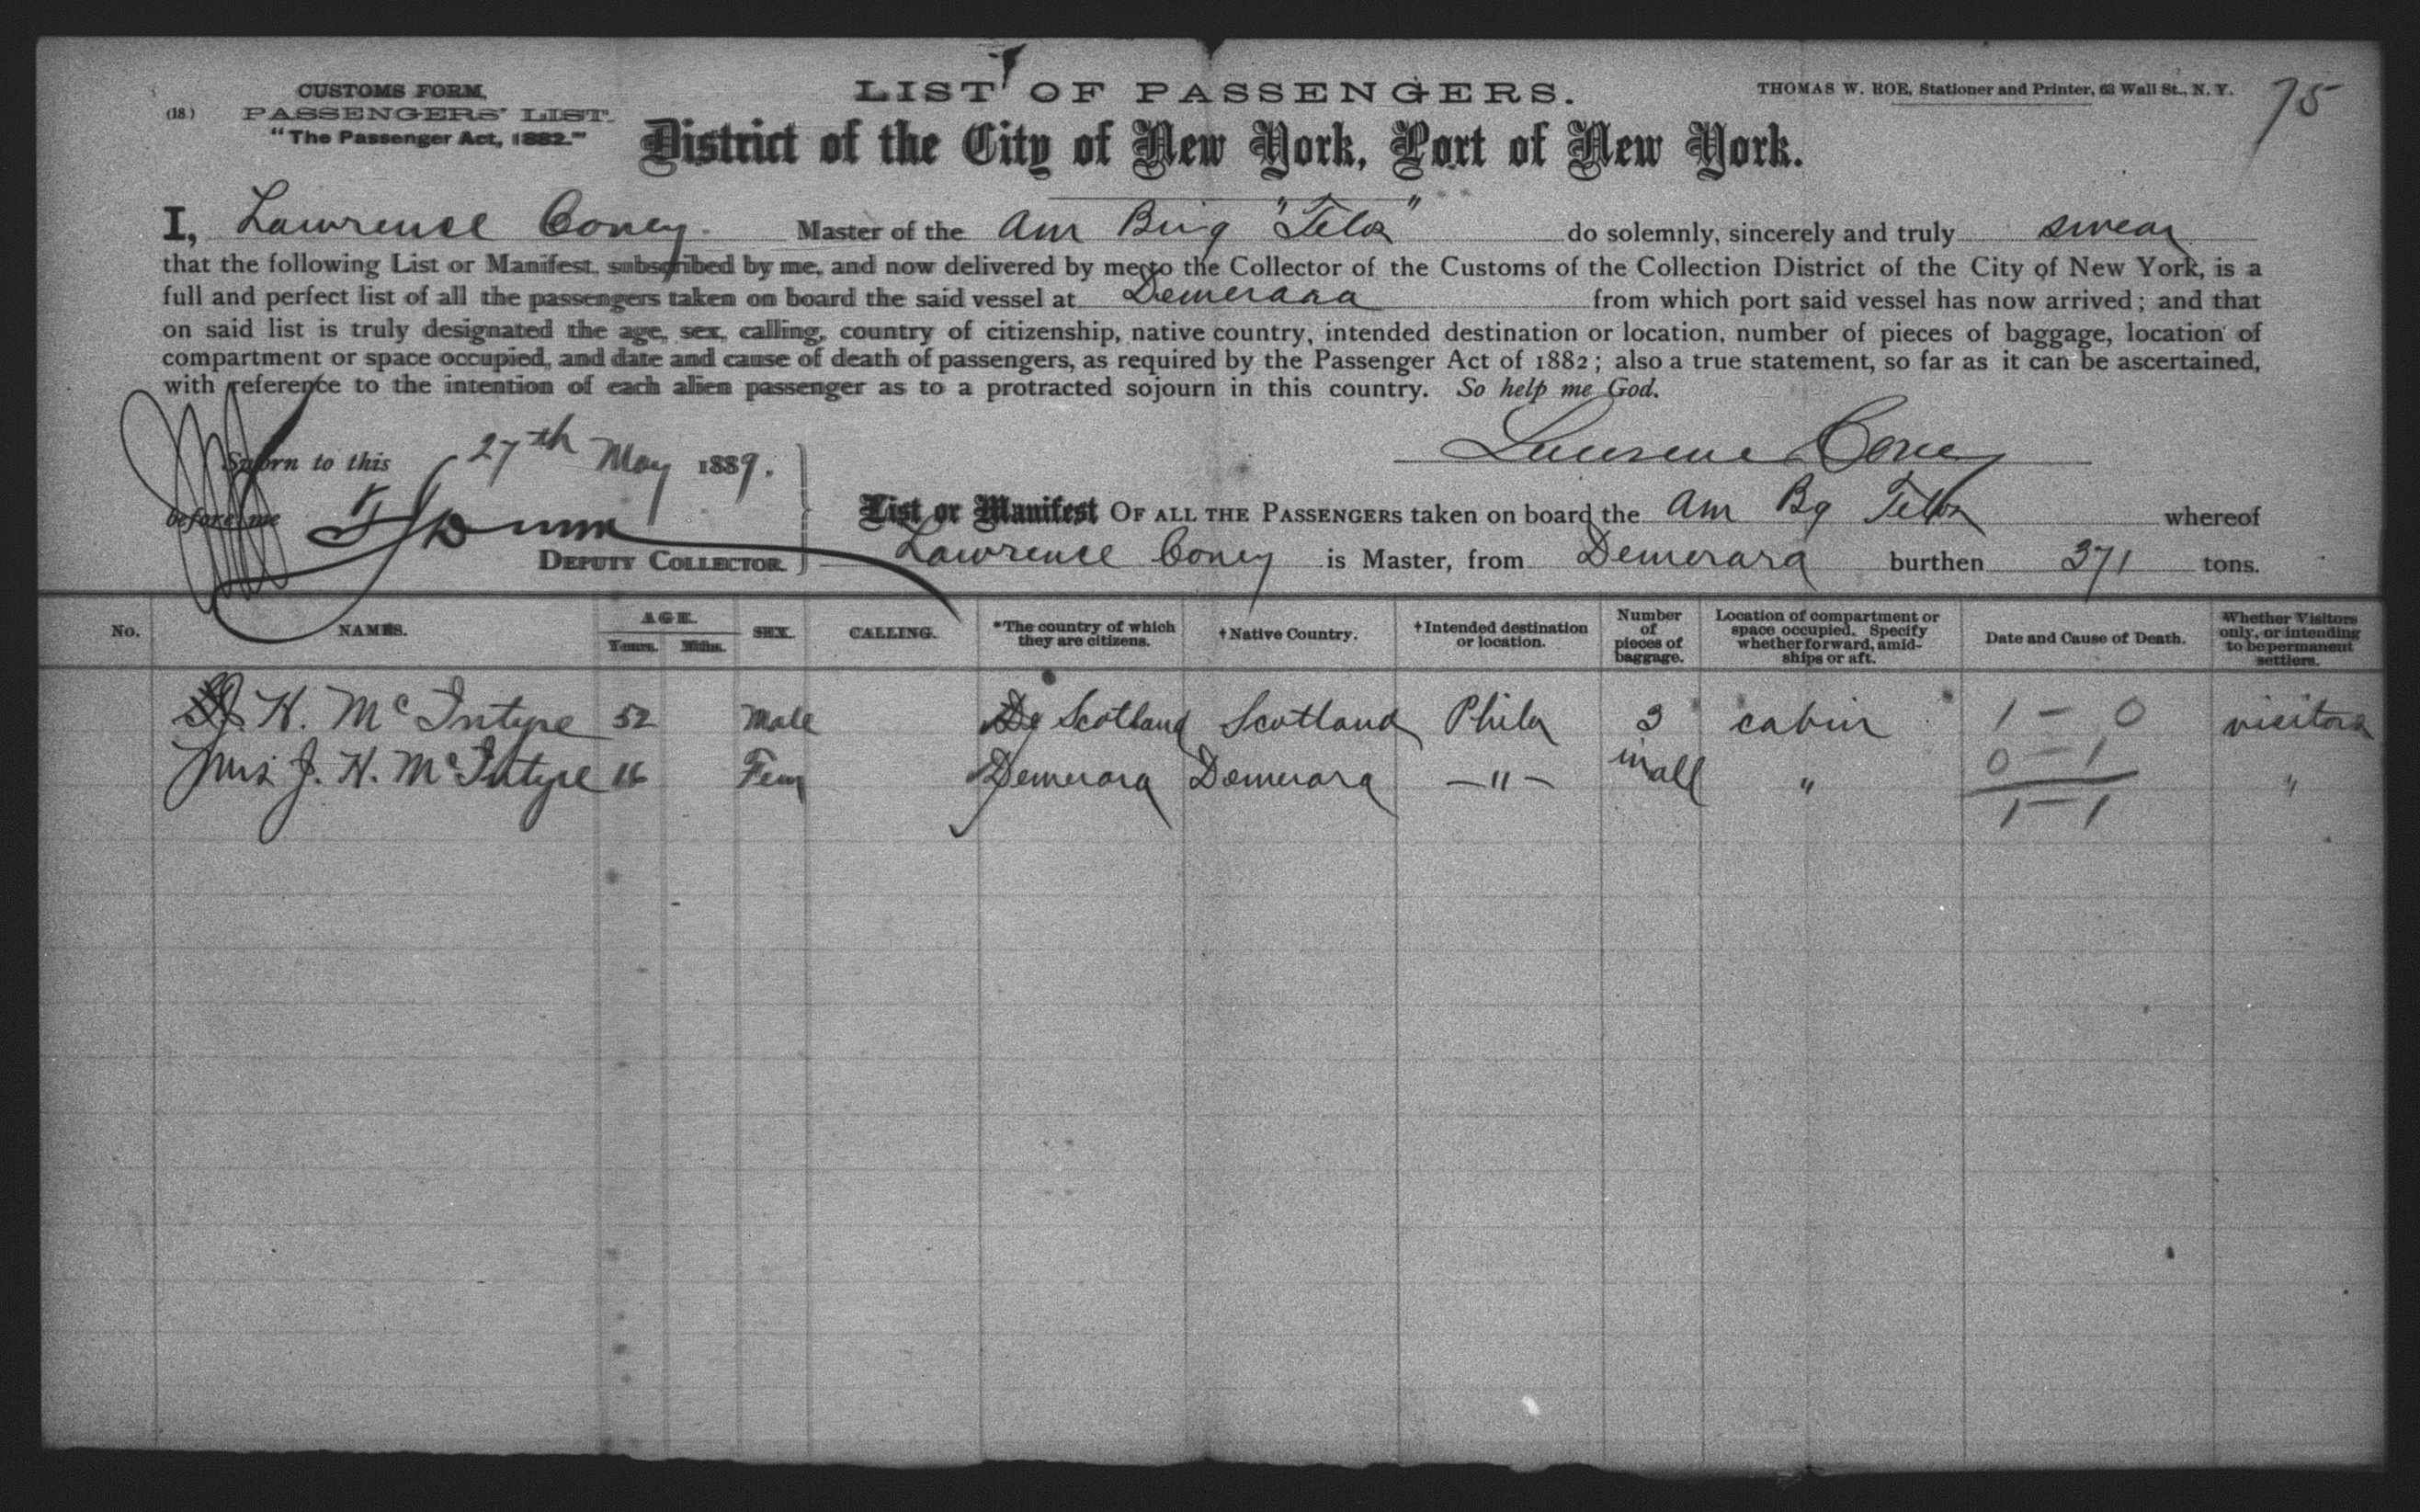 CUSTOMS FORM,
(18) PASSENGERS' LIST.
"The Passenger Act, 1882."
LIST OF PASSENGERS.
THOMAS W. ROE, Stationer and Printer, 63 Wall St., N. Y.
75
District of the City of New York, Port of New York.
I, Lawrence Coney Master of the Am Brig do solemnly, sincerely and truly swear
that the following List or Manifest, subscribed by me, and now delivered by me to the Collector of the Customs of the Collection District of the City of New York, is a
full and perfect list of all the passengers taken on board the said vessel at Demerara from which port said vessel has now arrived; and that
on said list is truly designated the age, sex, calling, country of citizenship, native country, intended destination or location, number of pieces of baggage, location of
compartment or space occupied, and date and cause of death of passengers, as required by the Passenger Act of 1882; also a true statement, so far as it can be ascertained,
with reference to the intention of each alien passenger as to a protracted sojourn in this country. So help me God.
Lawrence Coney
Sworn to this 27th May 1889.
before me
DEPUTY COLLECTOR.
List or Manifest OF ALL THE PASSENGERS taken on board the Am Bg whereof
Lawrence Coney is Master, from Demerara burthen 371 tons.
No. NAMES. AGE. Years. Mths. SEX. CALLING. *The country of which they are citizens. †Native Country. †Intended destination or location. Number of pieces of baggage. Location of compartment or space occupied. Specify whether forward, amidships or aft. Date and Cause of Death. Whether Visitors only, or intending to be permanent settlers.
J. H. McIntyre 52 Male Scotland Scotland Phila 3 cabin 1 - 0 visitors
Mrs J. H. McIntyre 16 Fem Demerara Demerara - " - in all " 0 - 1 "
1 - 1